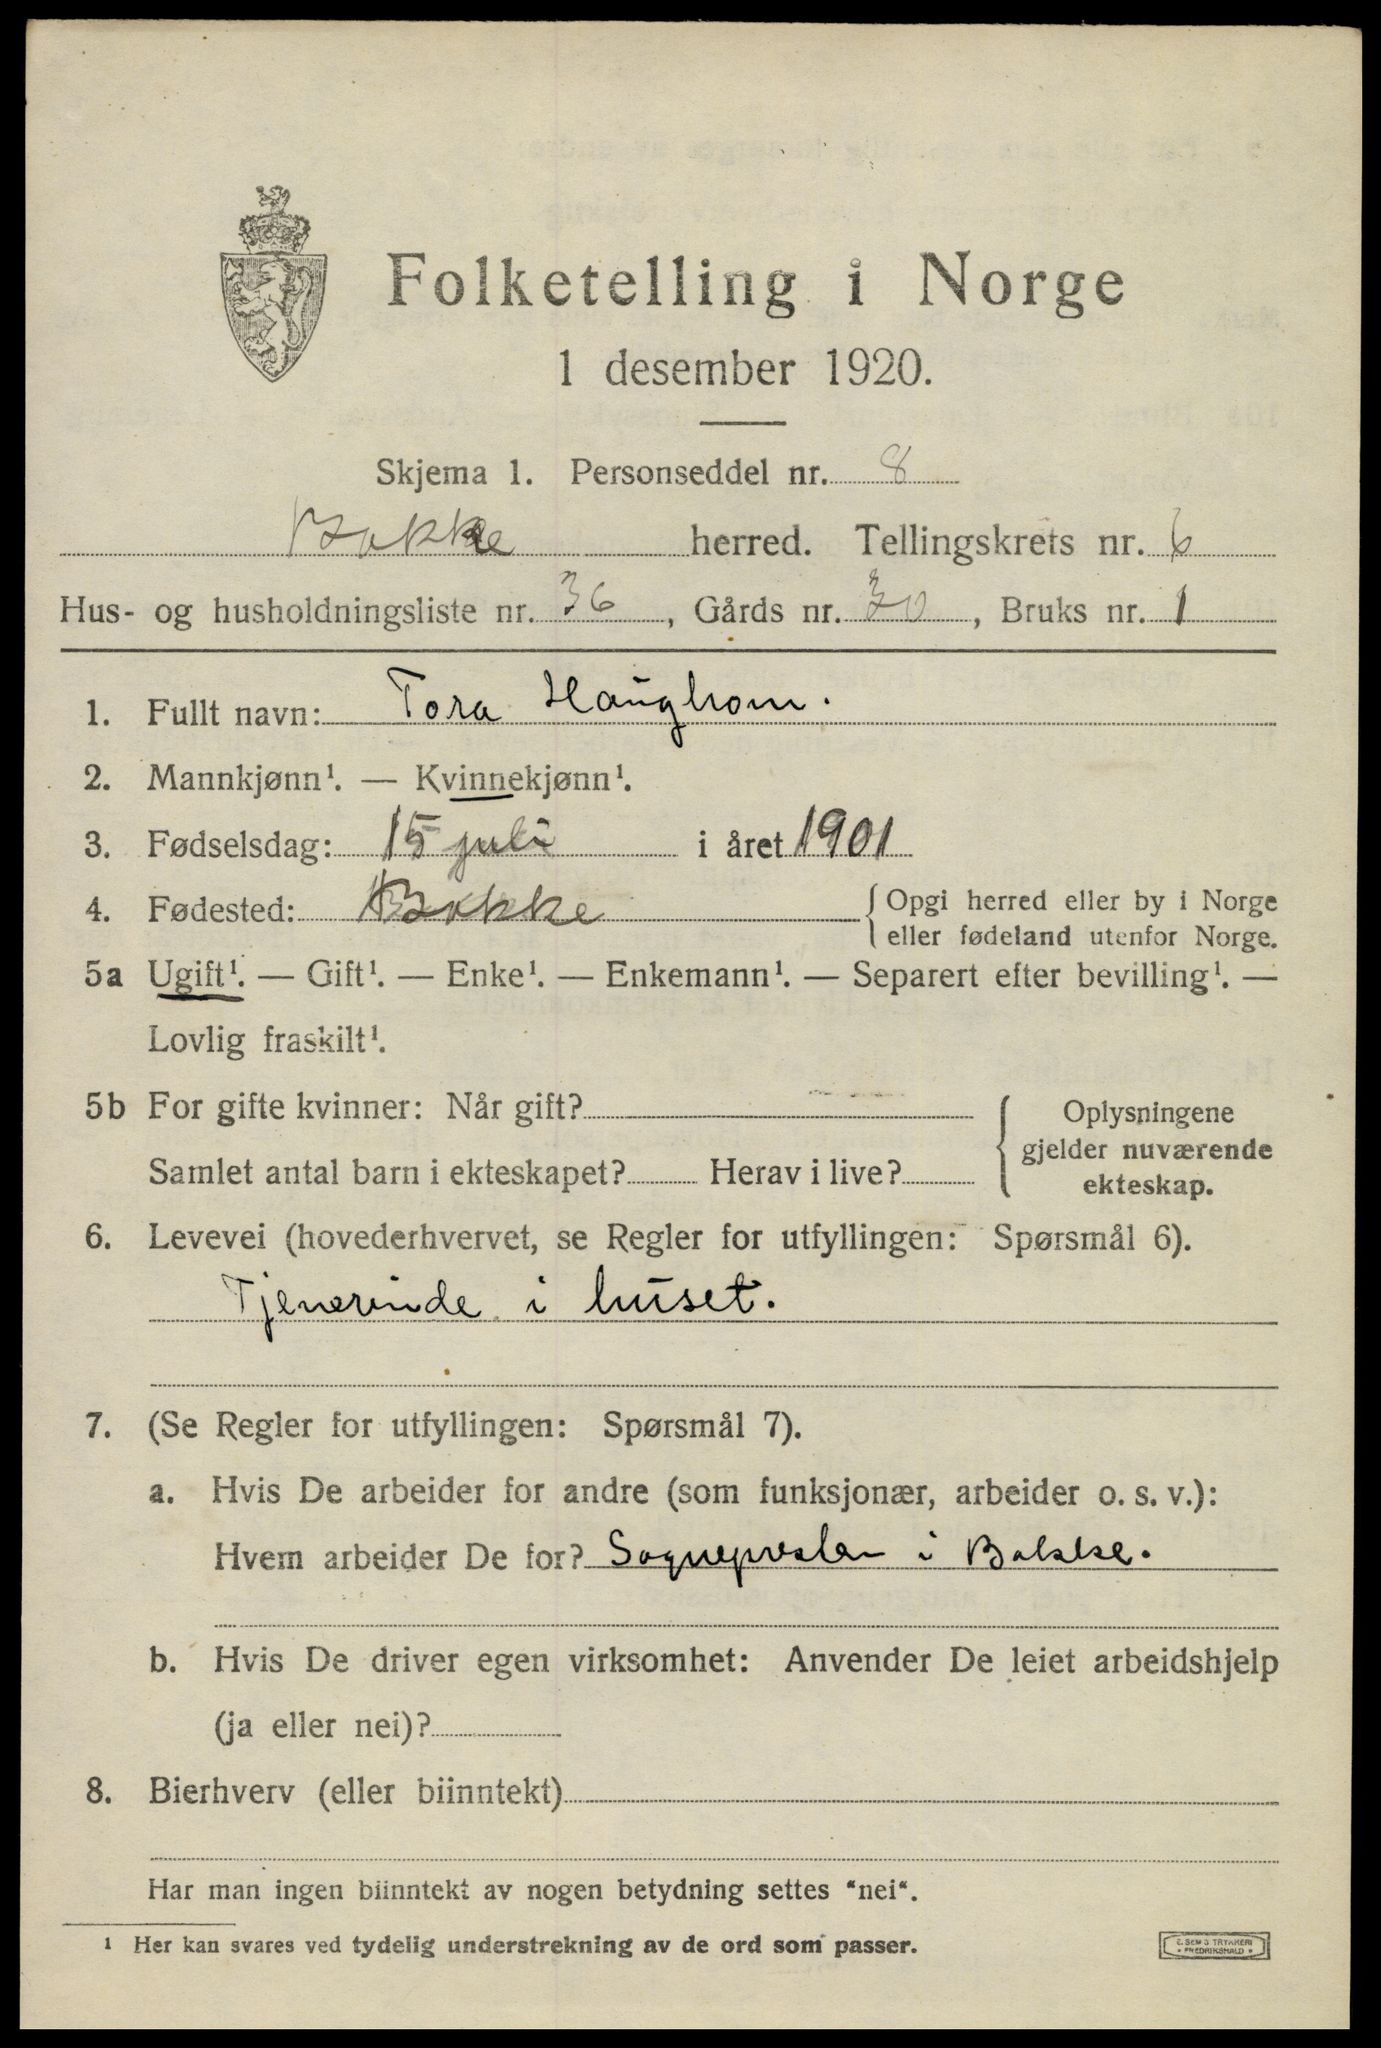 Folketelling i Norge
1 desember 1920.
Skjema 1. Personseddel nr. 8
Bakke herred. Tellingskrets nr. 6
Hus- og husholdningsliste nr. 36, Gårds nr. 30, Bruks nr. 1
1. Fullt navn: Tora Haughom.
2. Mannkjønn¹. — Kvinnekjønn¹.
3. Fødselsdag: 15 juli i året 1901
4. Fødested: Bakke { Opgi herred eller by i Norge
eller fødeland utenfor Norge.
5a Ugift¹. — Gift¹. — Enke¹. — Enkemann¹. — Separert efter bevilling¹. —
Lovlig fraskilt¹.
5b For gifte kvinner: Når gift?
Samlet antal barn i ekteskapet? Herav i live?
Oplysningene
gjelder nuværende
ekteskap.
6. Levevei (hovederhvervet, se Regler for utfyllingen: Spørsmål 6).
Tjenerinde i huset.
7. (Se Regler for utfyllingen: Spørsmål 7).
a. Hvis De arbeider for andre (som funksjonær, arbeider o. s. v.):
Hvem arbeider De for? Sognepresten i Bakke.
b. Hvis De driver egen virksomhet: Anvender De leiet arbeidshjelp
(ja eller nei)?
8. Bierhverv (eller biinntekt)
Har man ingen biinntekt av nogen betydning settes "nei".
¹ Her kan svares ved tydelig understrekning av de ord som passer.
E. SEM'S TRYKKERI
• FREDRIKSHALD •